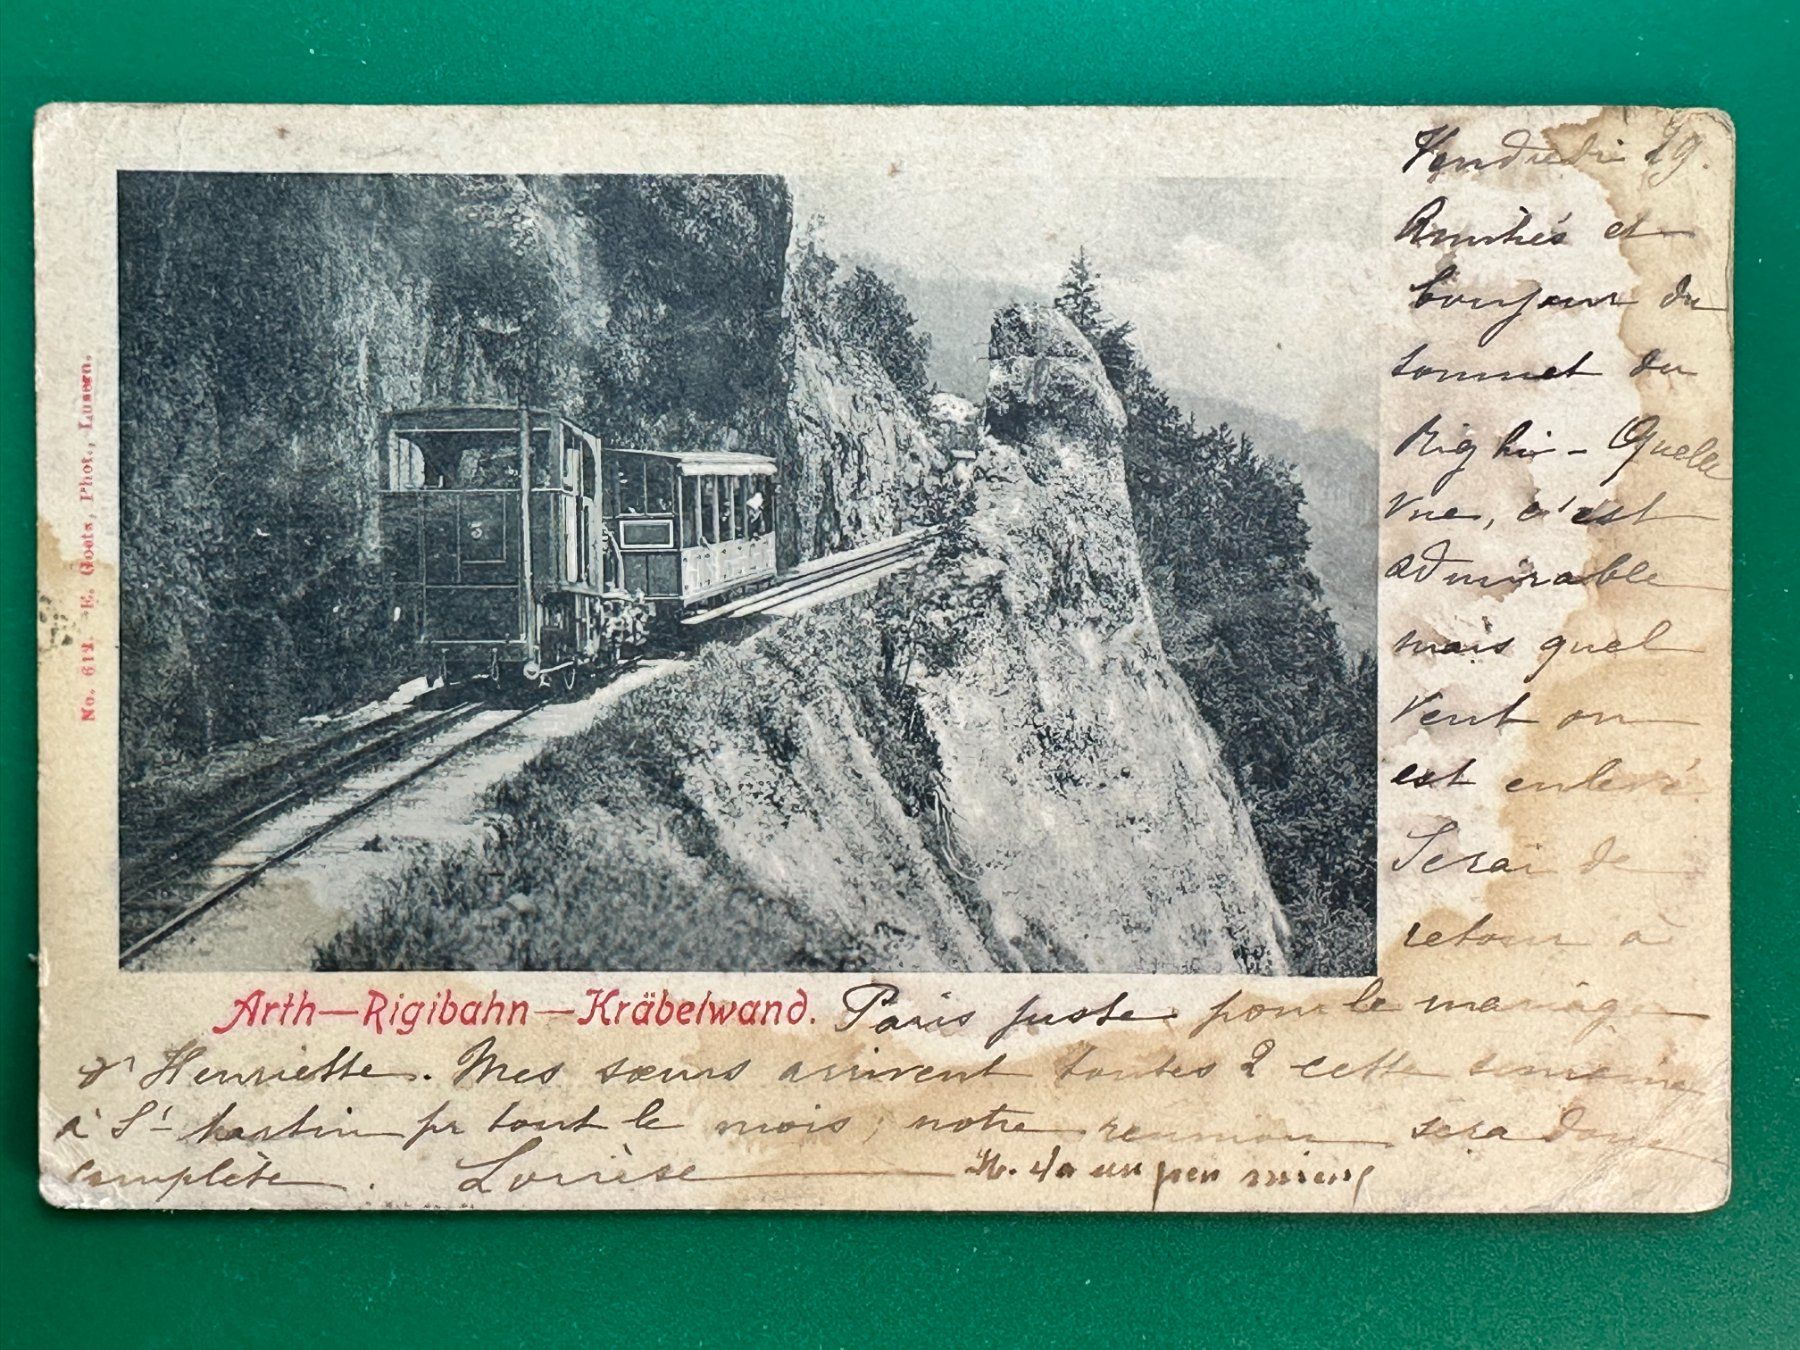 No. 612. E. Goetz, Phot., Luzern.
3
Vendredi 29.
Amitiés et
bonjour du
sommet du
Righi - Quelle
vue, c'est
admirable
mais quel
vent on
est enlevé.
Serai de
retour à
Arth—Rigibahn—Kräbelwand.
Paris juste pour le mariage
d'Henriette. Mes sœurs arrivent toutes 2 cette semaine
à St Martin pr tout le mois; notre reunion sera donc
complète. Louise
H. va un peu mieux